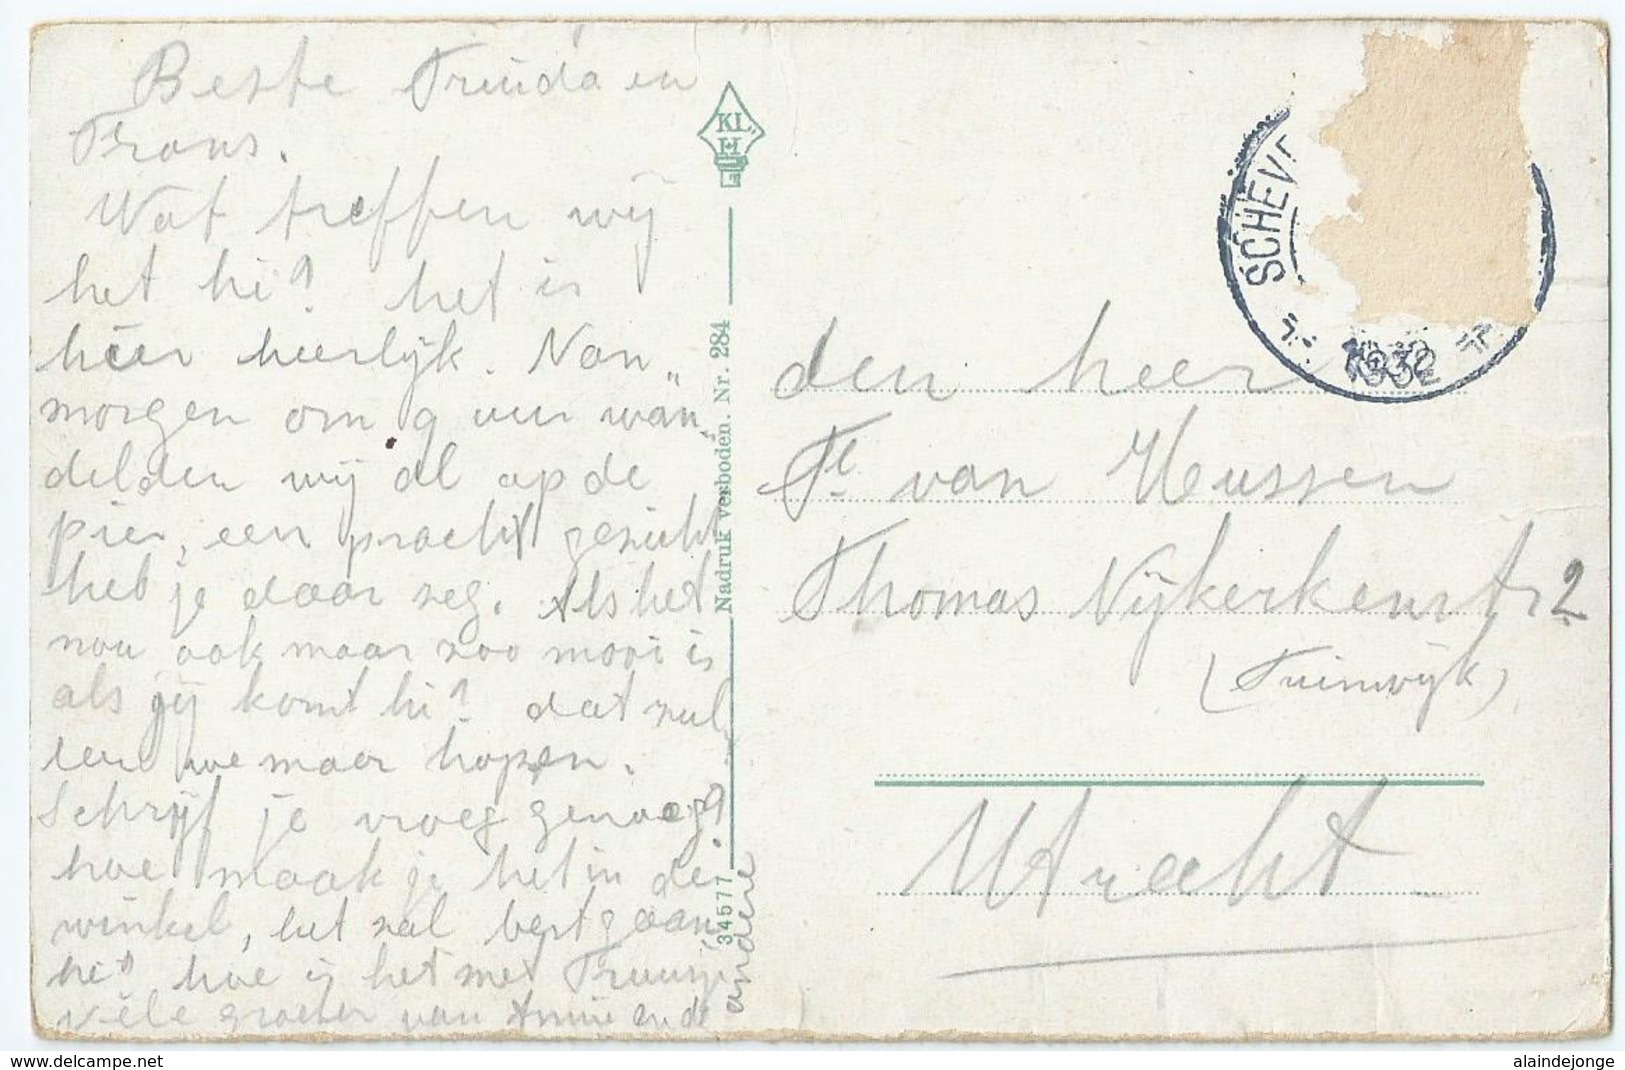 Beste Truida en
Frans.
Wat treffen wij
het hé? het is
hier heerlijk. Van„
morgen om 9 uur wan„
delden wij al op de
pier, een pracht gezicht
heb je daar zeg. Als het
nou ook maar zoo mooi is
als jij komt hé? dat zul
len we maar hopen.
Schrijf je vroeg genoeg?
hoe maak je het in de
winkel, het zal best gaan
hé? hoe is het met Truusje
vele groeten van Annie en de
andere
KL.
H
Nadruk verboden. Nr. 284
34577
SCHEVE
1932
den heer
F. van Heussen
Thomas Nijkerkenstr 2
(Tuinwijk)
Utrecht
http://www.delcampe.net
alaindejonge